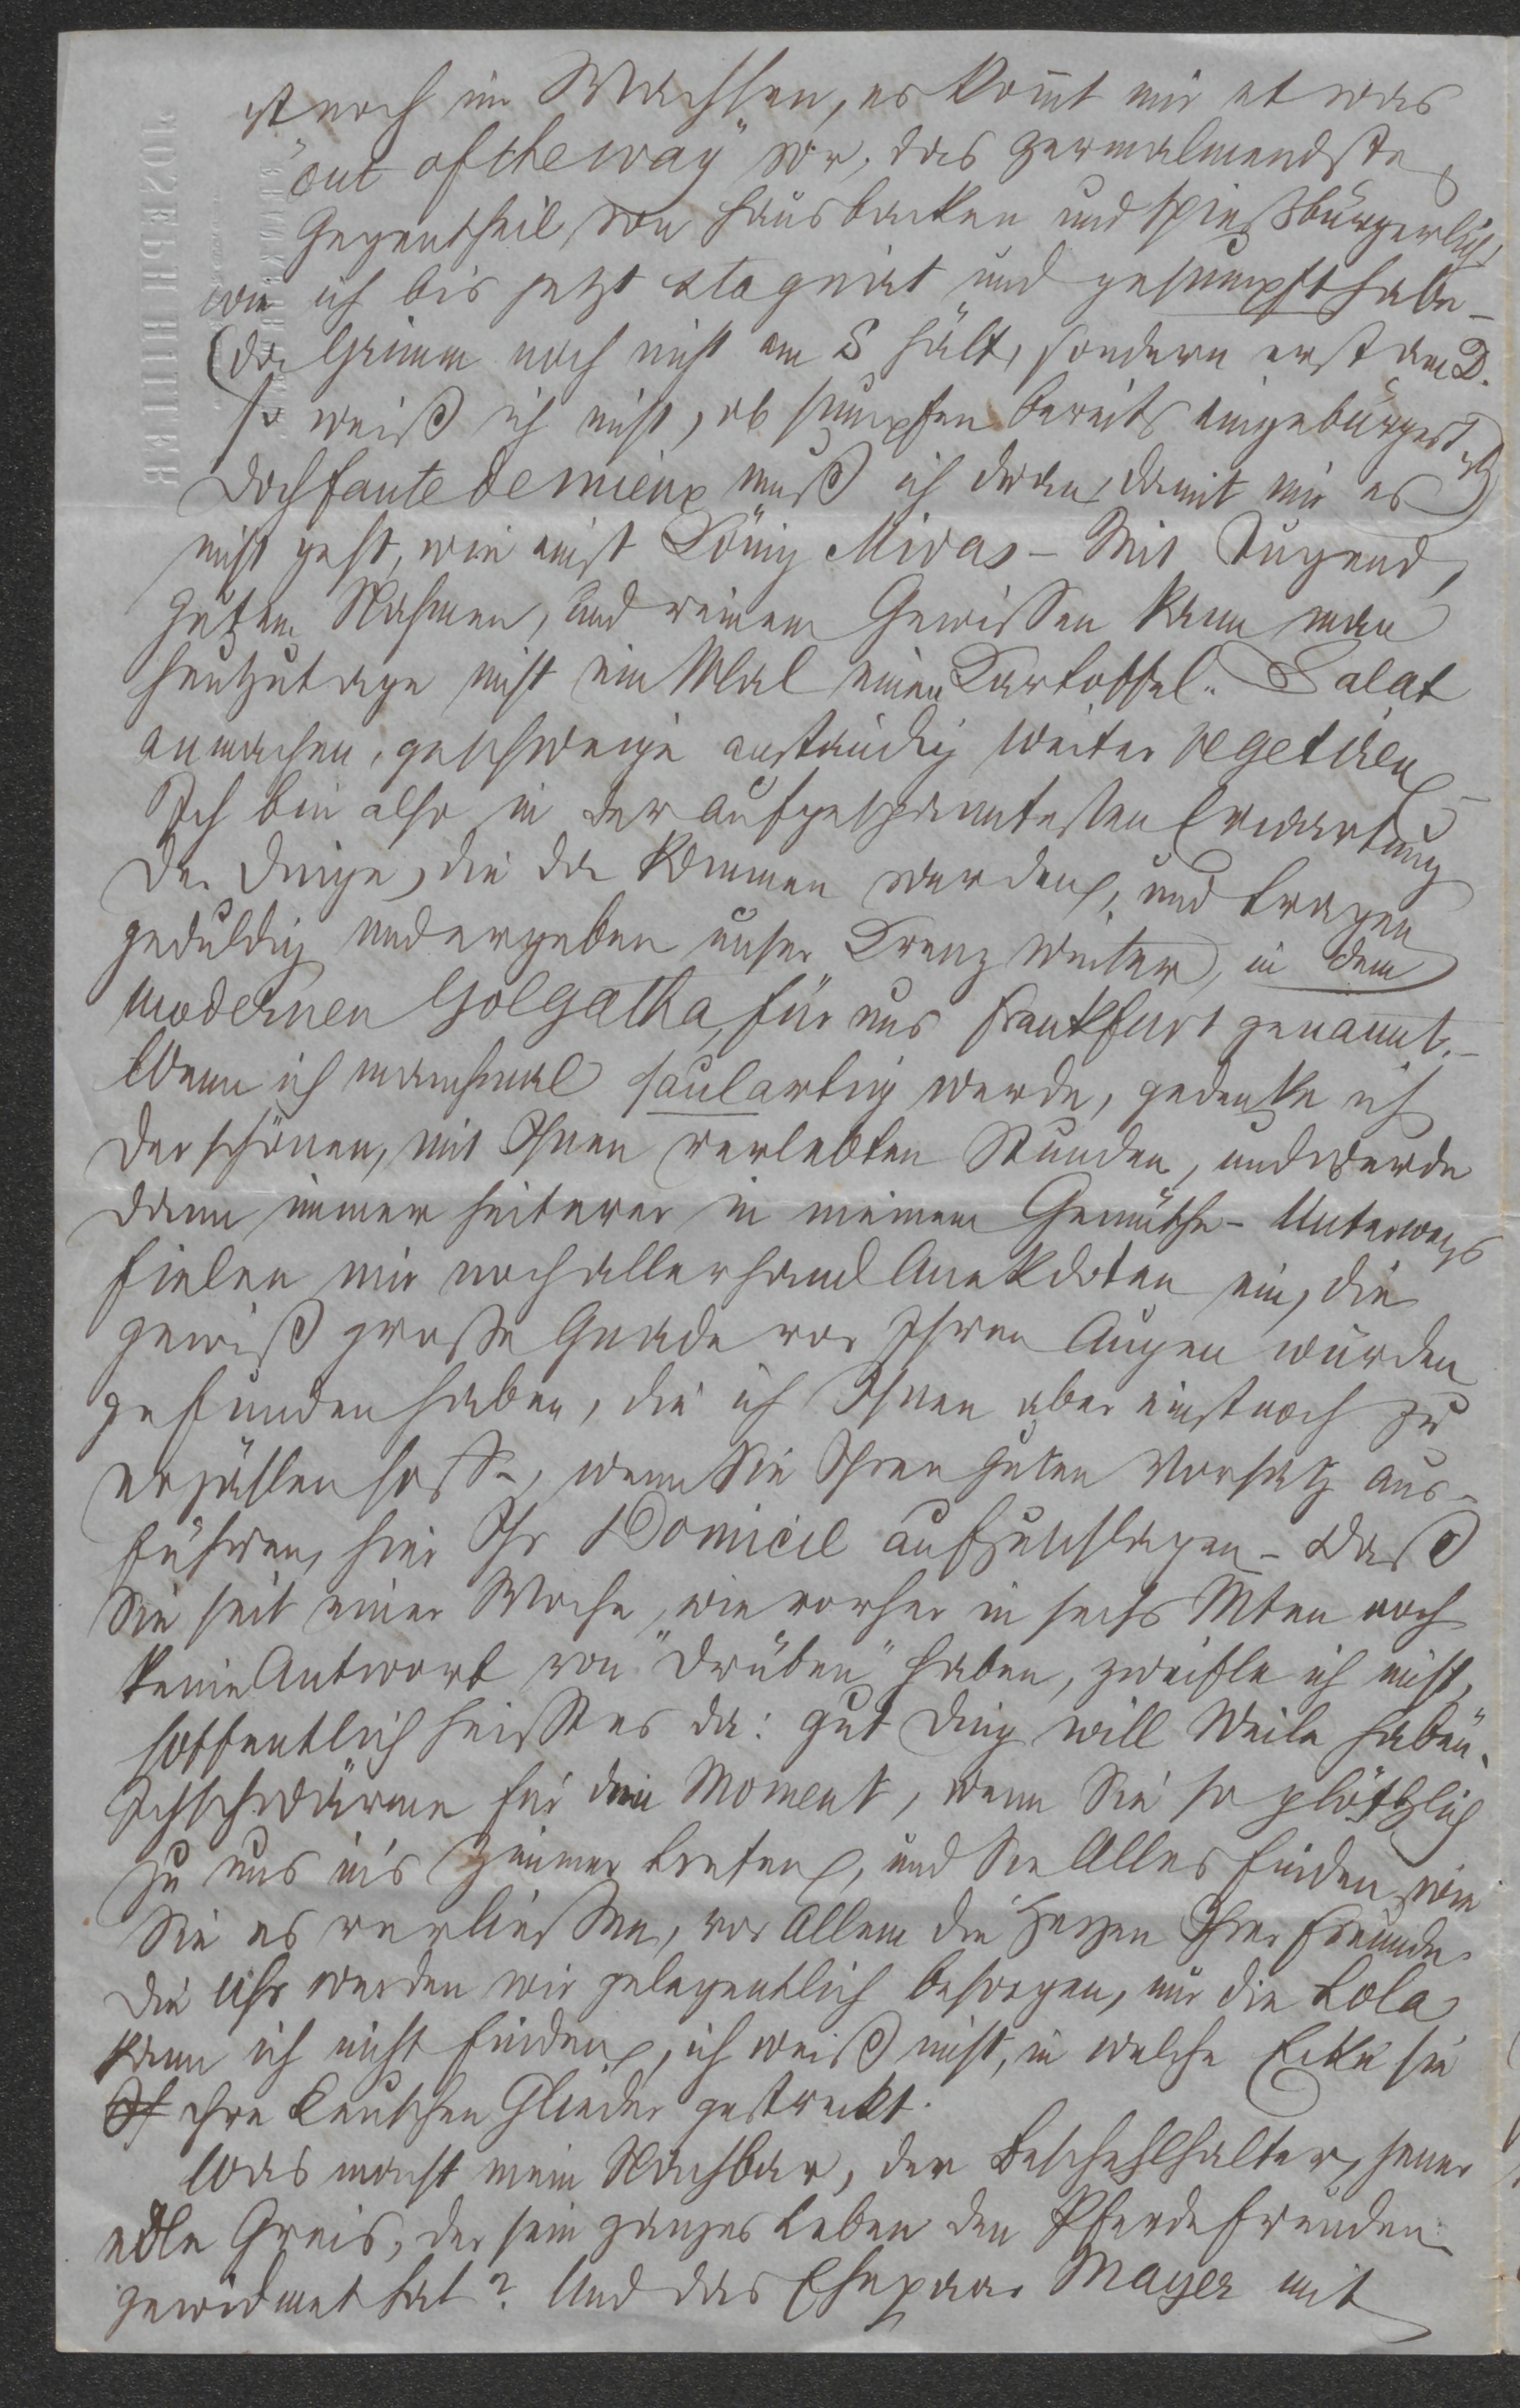 ist noch im Wachsen, es kom̄t mir etwas
"out of the way" vor, das zermalmendste
Gegentheil von hausbacken und spiessbürgerlich,
wie ich bis jetzt stagnirt und gesumpft habe –
(da Grimm noch nicht am S hält, sondern erst am D.
so weiß ich nicht, ob sumpfen bereits eingebürgert ist)
doch faute de mieux muß ich daran, damit mir es
nicht geht, wie einst König Midas – Mit Tugend,
gutem Nahmen, und reinem Gewissen kann man
heutzutage nicht ein Mal einen Kartoffel-Salat
anmachen, geschweige anständig weiter vegetiren –
Ich bin also in der aufgespanntesten Erwartung
der Dinge, die da kommen werden, und tragen
geduldig und ergeben unser Kreuz weiter, in dem
modernen Golgatha, für uns Frankfurt genannt. –
Wenn ich manchmal saulartig werde, gedenke ich
der schönen, mit Ihnen verlebten Stunden, und werde
dann immer heiterer in meinem Gemüthe – Unterwegs
fielen mir noch allerhand Anekdoten ein, die
gewiß grosse Gnade vor Ihren Augen würden
gefunden haben, die ich Ihnen aber einst noch zu
erzählen hoffe, wenn Sie Ihren guten Vorsatz aus-
führen, hier Ihr Domicil aufzuschlagen – Daß
Sie seit einer Woche, wie vorher in sechs Mten noch
keine Antwort von "drüben" haben, zweifle ich nicht,
hoffentlich heisst es da: gut Ding will Weile haben.
Ich schwärme für den Moment, wenn Sie so plötzlich
zu uns in's Zimmer treten, und Sie Alles finden wie
Sie es verliessen, vor Allem die Herzen Ihrer Freunde.
Die Uhr werden wir gelegentlich besorgen, nur die Lola
kann ich nicht finden, ich weiß nicht, in welche Ecke sie
ihre keuschen Glieder gestreckt.
Was macht mein Nachbar, der Beschehlhalter, jener
edle Greis, der sein ganzes Leben den Pferdefreuden
gewidmet hat? Und das Ehepaar Mayer mit